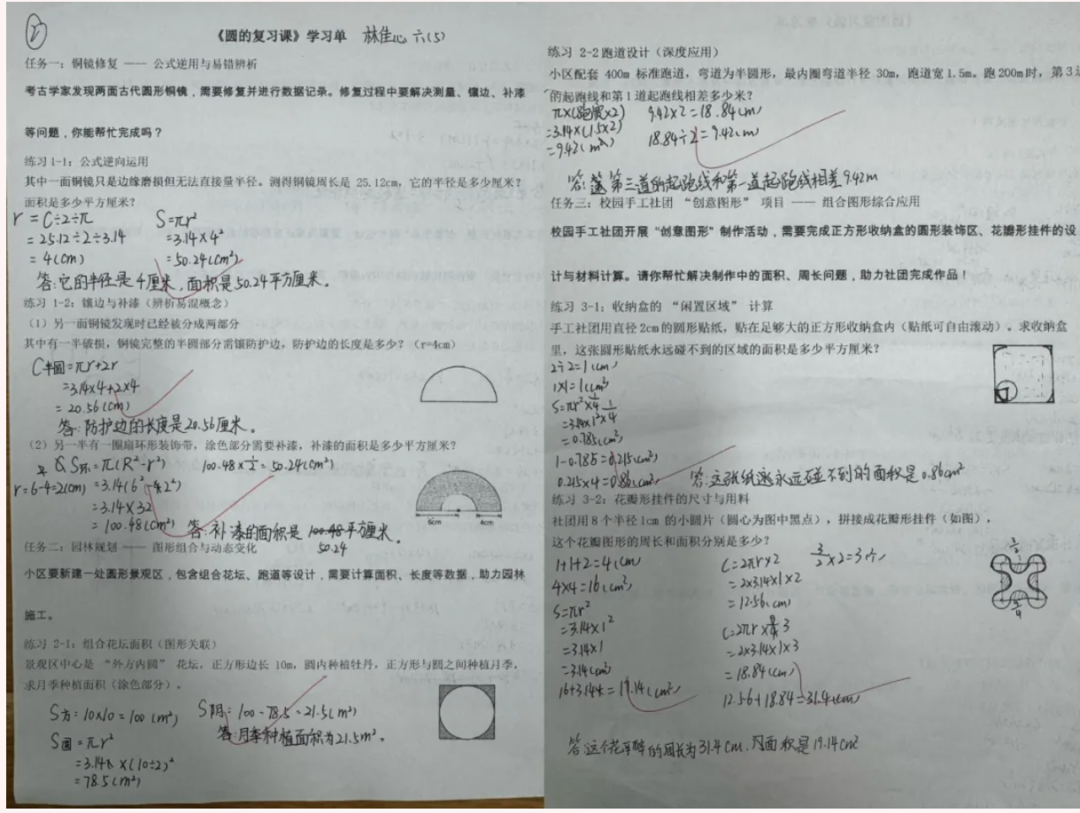 2
《圆的复习课》学习单 林佳心 六(5)
任务一：铜镜修复 —— 公式逆用与易错辨析
考古学家发现两面古代圆形铜镜，需要修复并进行数据记录。修复过程中要解决测量、镶边、补漆
等问题，你能帮忙完成吗？
练习 1-1：公式逆向运用
其中一面铜镜只是边缘磨损但无法直接量半径。测得铜镜周长是 25.12cm，它的半径是多少厘米？
面积是多少平方厘米？
r = C÷2÷π
= 25.12÷2÷3.14
= 4(cm)
S=πr²
=3.14×4²
=50.24(cm²)
答:它的半径是4厘米，面积是50.24平方厘米。
练习 1-2：镶边与补漆（辨析易混概念）
（1）另一面铜镜发现时已经被分成两部分
其中有一半破损，铜镜完整的半圆部分需镶防护边，防护边的长度是多少？（r=4cm）
C半圆=πr+2r
=3.14×4+2×4
= 20.56(cm)
答:防护边的长度是20.56厘米。
（2）另一半有一圈扇环形装饰带，涂色部分需要补漆，补漆的面积是多少平方厘米？
S环=π(R²-r²)
100.48×½=50.24(cm²)
r=6-4=2(cm)
=3.14×32
= 100.48(cm²)
6cm
4cm
答:补漆的面积是 100.48平方厘米。
50.24
任务二：园林规划 —— 图形组合与动态变化
小区要新建一处圆形景观区，包含组合花坛、跑道等设计，需要计算面积、长度等数据，助力园林
施工。
练习 2-1：组合花坛面积（图形关联）
景观区中心是 “外方内圆” 花坛，正方形边长 10m，圆内种植牡丹，正方形与圆之间种植月季，
求月季种植面积（涂色部分）。
S方=10×10=100(m²)
S圆=πr²
=3.14×(10÷2)²
=78.5(m²)
S阴=100-78.5=21.5(m²)
答:月季种植面积为21.5m²。
练习 2-2 跑道设计（深度应用）
小区配套 400m 标准跑道，弯道为半圆形，最内圈弯道半径 30m，跑道宽 1.5m。跑 200m 时，第 3
的起跑线和第 1 道起跑线相差多少米？
=3.14×(1.5×2)
9.42×2=18.84(m)
18.84÷2=9.42(m)
答: 第三道的起跑线和第一道起跑线相差9.42m
任务三：校园手工社团 “创意图形” 项目 —— 组合图形综合应用
校园手工社团开展“创意图形”制作活动，需要完成正方形收纳盒的圆形装饰区、花瓣形挂件的设
计与材料计算。请你帮忙解决制作中的面积、周长问题，助力社团完成作品！
练习 3-1：收纳盒的 “闲置区域” 计算
手工社团用直径 2cm 的圆形贴纸，贴在足够大的正方形收纳盒内（贴纸可自由滚动）。求收纳盒
里，这张圆形贴纸永远碰不到的区域的面积是多少平方厘米？
2÷2=1(cm)
1×1=1(cm²)
S=πr²×¼
=3.14×1²×¼
=0.785(cm²)
1-0.785=0.215(cm²)
0.215×4=0.86(cm²)
答:这张纸永远碰不到的面积是0.86cm²
练习 3-2：花瓣形挂件的尺寸与用料
社团用 8 个半径 1cm 的小圆片（圆心为图中黑点），拼接成花瓣形挂件（如图），
这个花瓣图形的周长和面积分别是多少？
1+1+2=4(cm)
4×4=16(cm²)
S=πr²
=3.14×1²
=3.14×1
=3.14(cm²)
16+3.14=19.14(cm²)
C=2πr×2
=2×3.14×1×2
=12.56(cm)
=2×3.14×1×3
=18.84(cm)
12.56+18.84=31.4(cm)
答:这个花瓣的周长为31.4cm，面积是19.14cm²